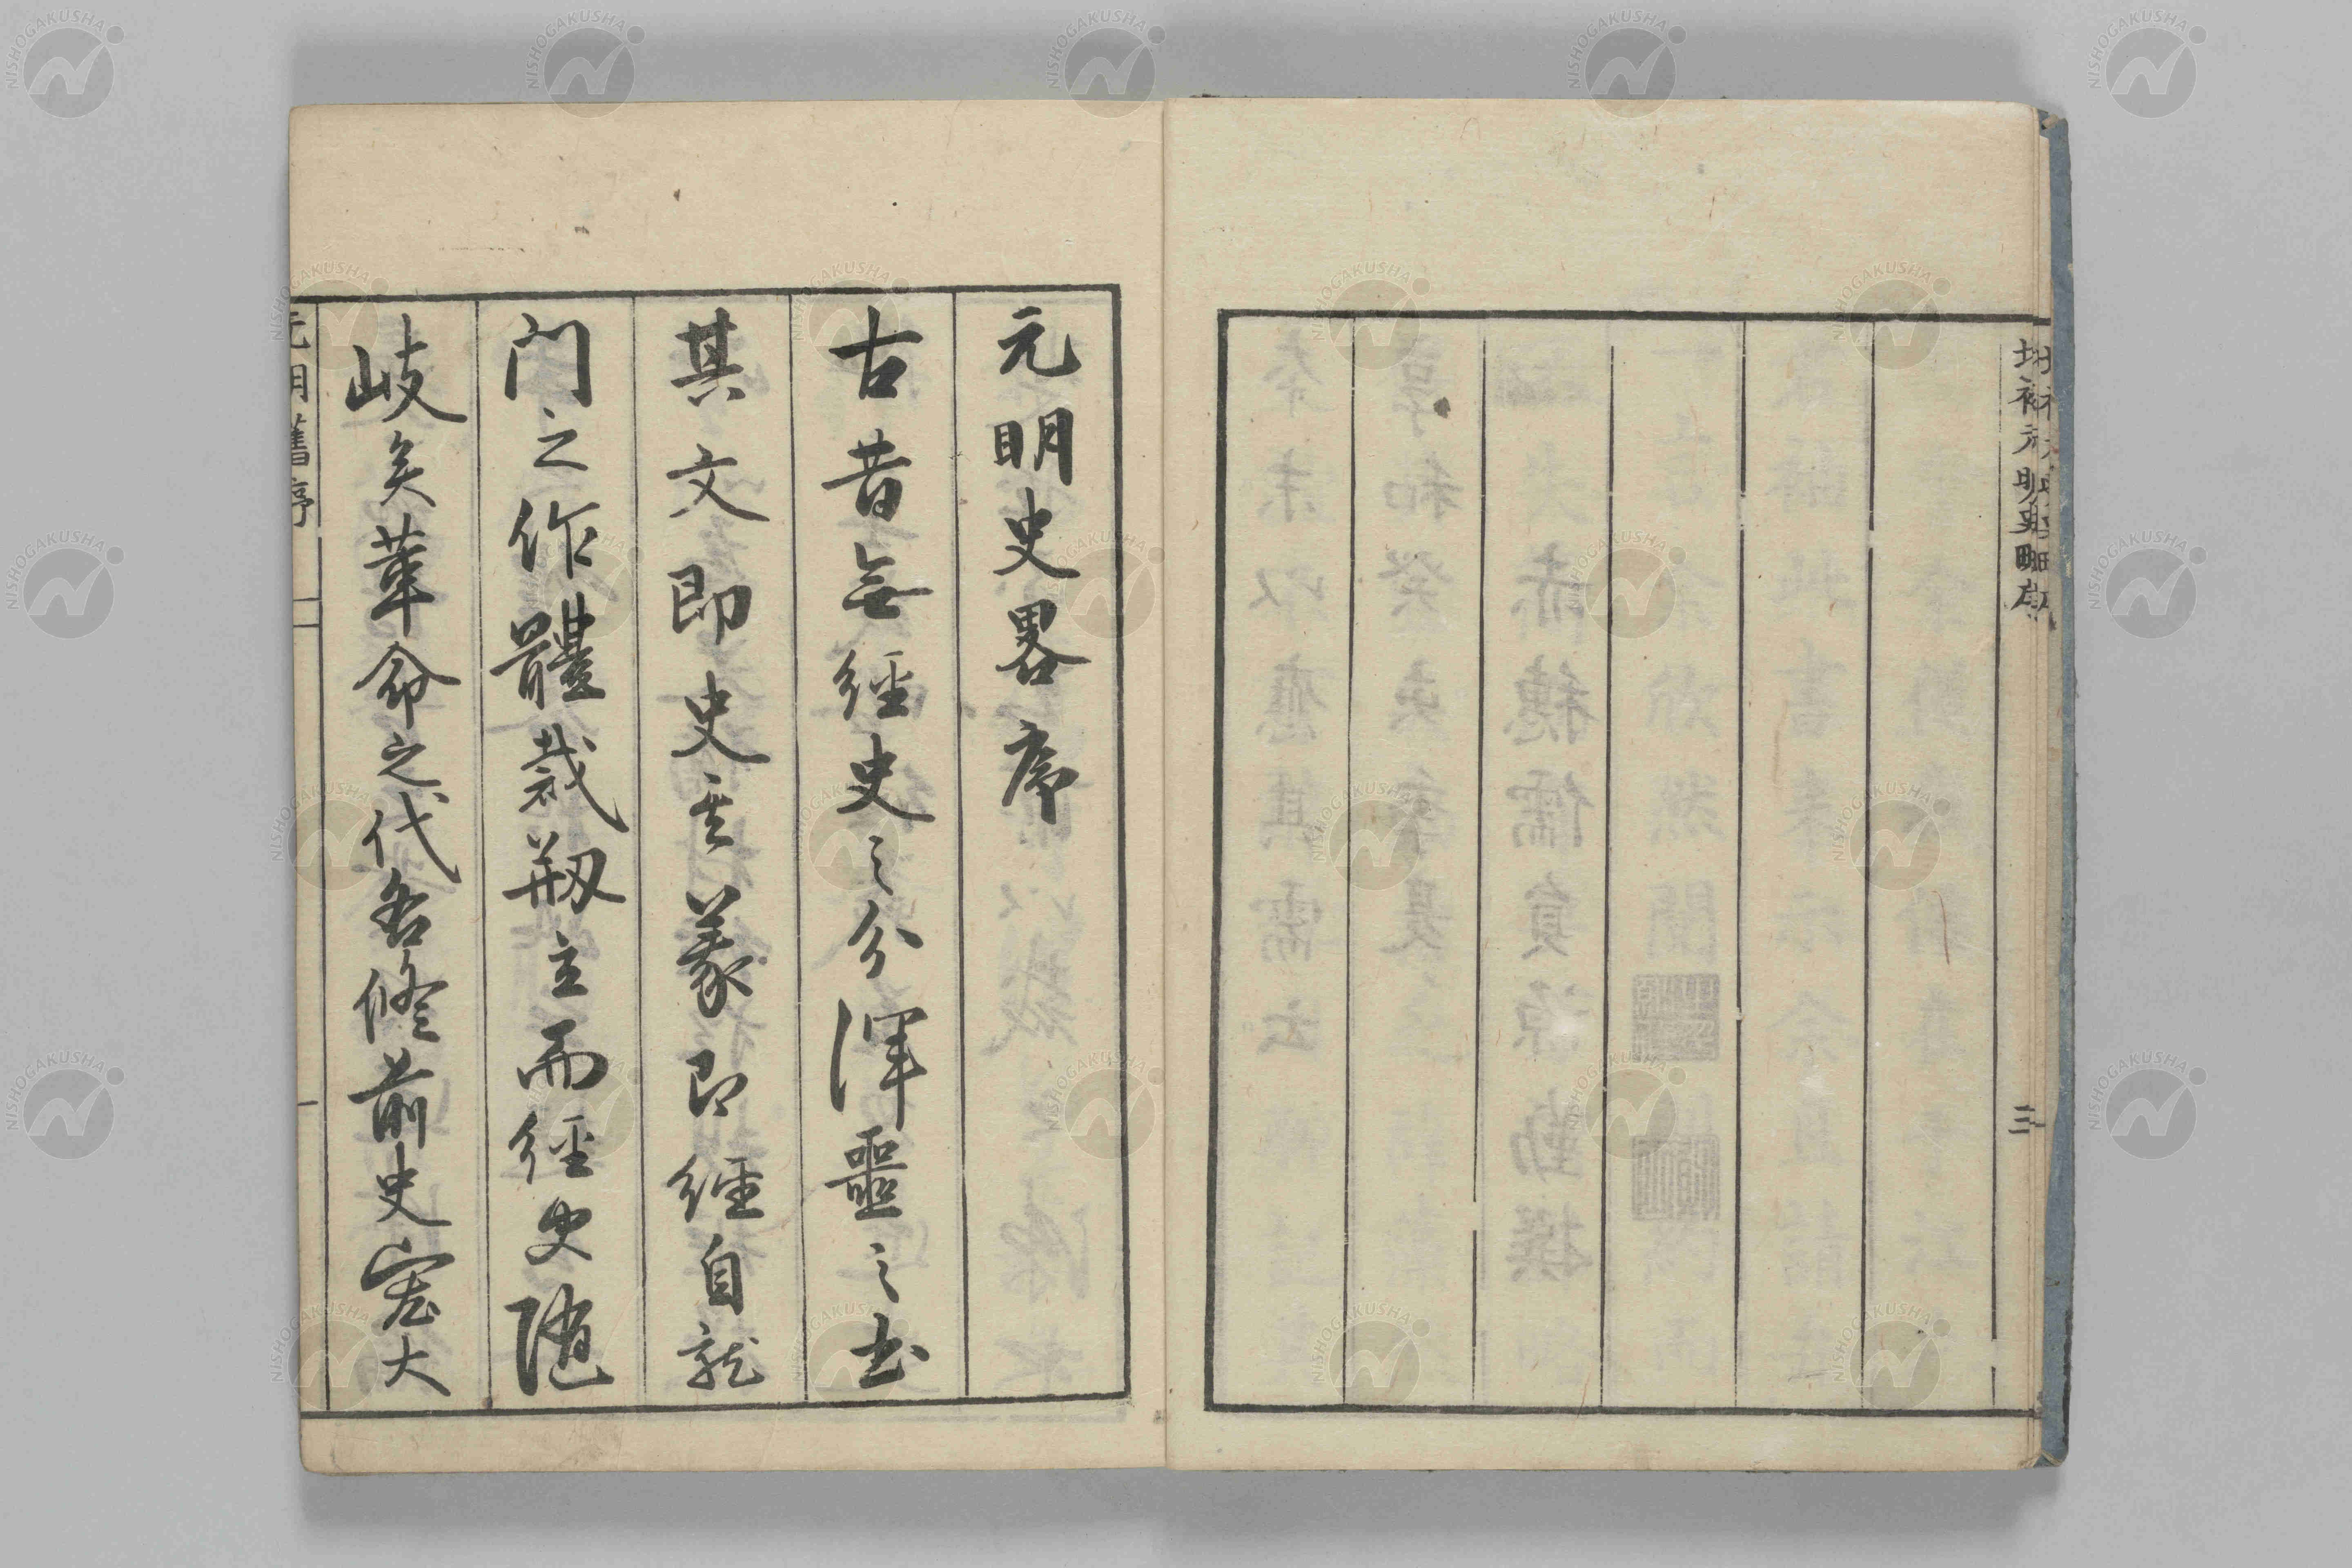 増補元明史畧序
三
元明史畧序
古昔無經史之分渾噩之書
其文即史其義即經自龍
門之作體裁剏立而經史隨
岐矣革命之代各修前史大
元明舊序
一
NISHOGAKUSHA